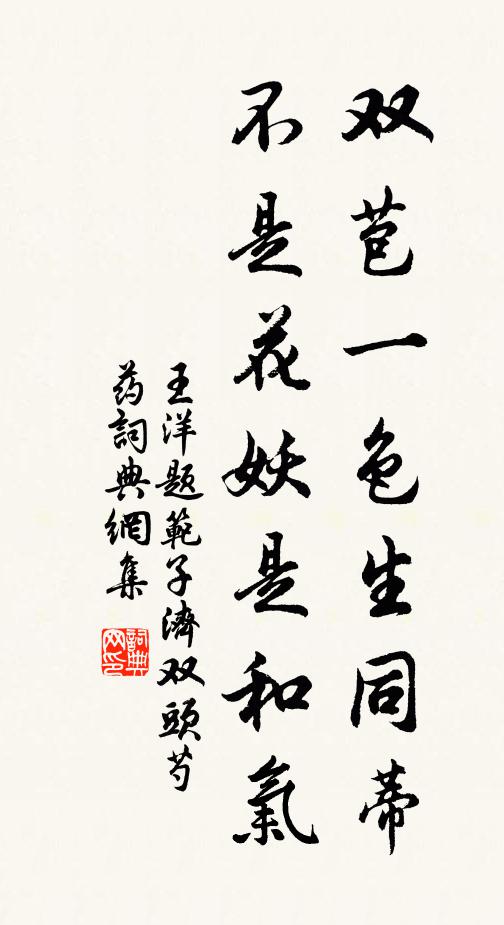 双苞一色生同蒂
不是花妖是和氣
王洋题範子濟双頭芍
药詞典網集
詞典网印